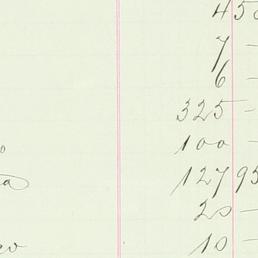 4 50
7 -
6 -
325 -
100 -
127 95
20 -
10 -